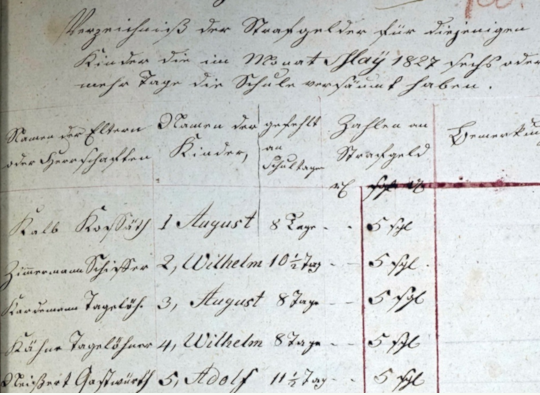 Verzeichniß der Strafgelder für diejenigen
Kinder die im Monat May 1827 sechs oder
mehr Tage die Schule versäumt haben.
Namen der Eltern
oder Herrschaften
Namen der
Kinder,
gefehlt
an
Schultage
Zahlen an
Strafgeld
Kalb Kossäth 1 August 8 Tage - - 5 sgl
Zimmermann Schiffer 2, Wilhelm 10 1/2 Tag - - 5 sgl.
Tagelöh. 3, August 8 Tage - - 5 sgl
Kähne Tagelöhner 4, Wilhelm 8 Tage - - 5 sgl
Gastwürth 5, Adolf 11 1/2 Tag - - 5 sgl